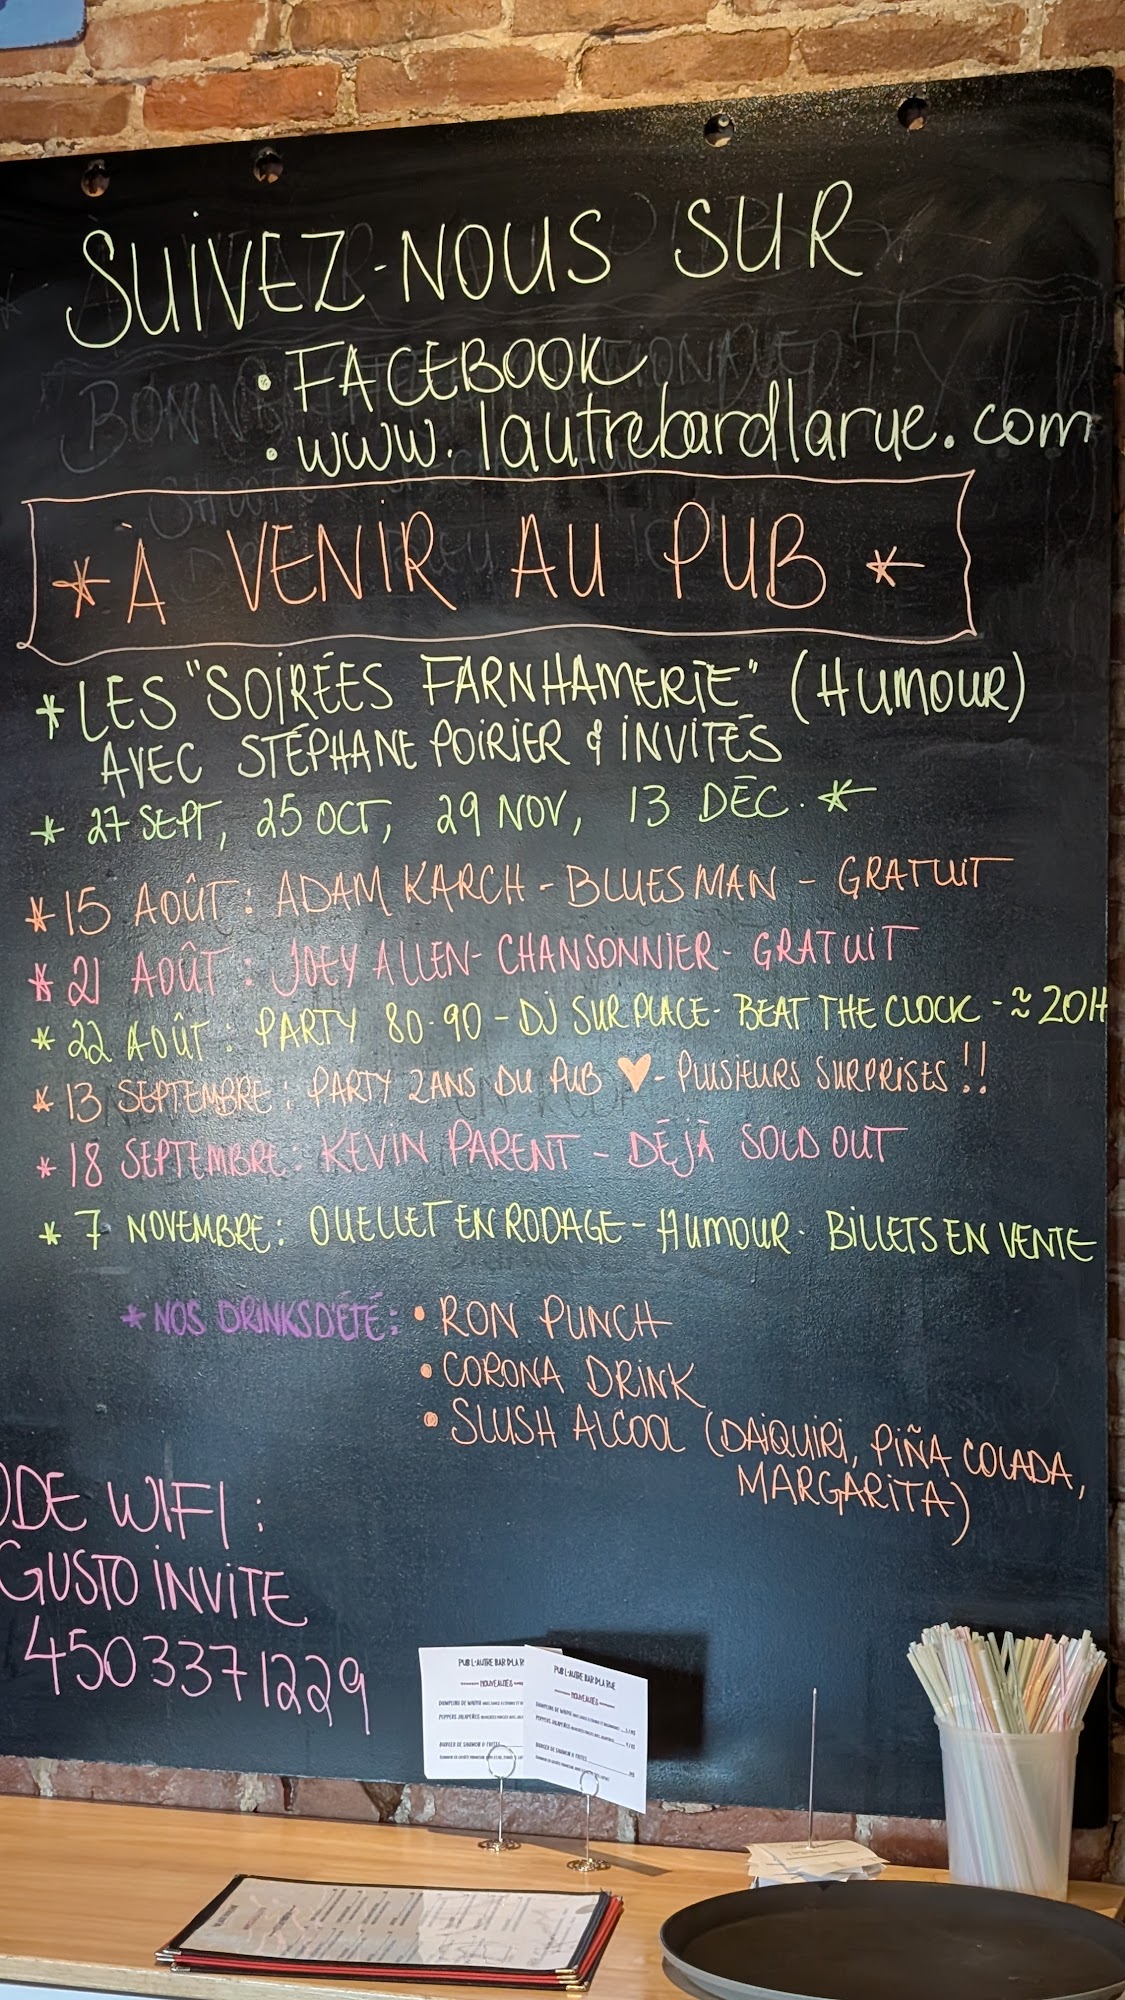 SUIVEZ-NOUS SUR
• FACEBOOK
• www.lautrebardlarue.com
* À VENIR AU PUB *
* LES "SOIRÉES FARNHAMERIE" (HUMOUR)
AVEC STÉPHANE POIRIER & INVITÉS
* 27 SEPT, 25 OCT, 29 NOV, 13 DÉC. *
* 15 AOÛT : ADAM KARCH - BLUESMAN - GRATUIT
* 21 AOÛT : JOEY ALLEN - CHANSONNIER - GRATUIT
* 22 AOÛT : PARTY 80-90 - DJ SUR PLACE - BEAT THE CLOCK - ≈ 20H
* 13 SEPTEMBRE : PARTY 2ANS DU PUB ♥ - PLUSIEURS SURPRISES !!
* 18 SEPTEMBRE : KEVIN PARENT - DÉJÀ SOLD OUT
* 7 NOVEMBRE : OUELLET EN RODAGE - HUMOUR - BILLETS EN VENTE
* NOS DRINKS D'ÉTÉ : • RON PUNCH
• CORONA DRINK
• SLUSH ALCOOL (DAIQUIRI, PIÑA COLADA,
MARGARITA)
ODE WIFI :
GUSTO INVITE
4503371229
PUB L'AUTRE BAR D'LA R
NOUVEAUTÉS
PUB L'AUTRE BAR D'LA RUE
NOUVEAUTÉS